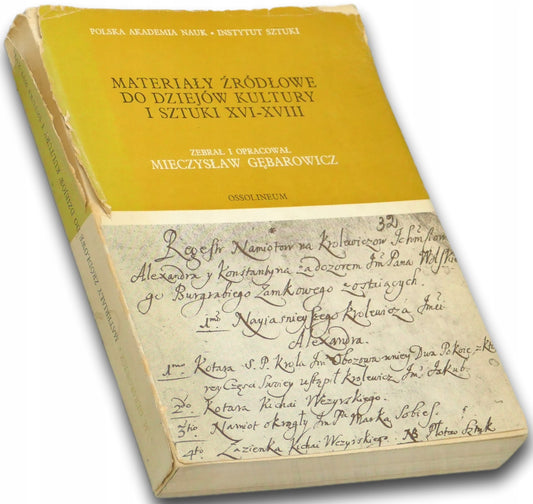 POLSKA AKADEMIA NAUK • INSTYTUT SZTUKI
MATERIAŁY ŹRÓDŁOWE
DO DZIEJÓW KULTURY
I SZTUKI XVI-XVIII
ZEBRAŁ I OPRACOWAŁ
MIECZYSŁAW GĘBAROWICZ
OSSOLINEUM
32
Regestr Namiotow na Krolewiczow Ichmsciow
Alexandra y Konstantyna za dozorem Jm Pana
go Burgrabiego Zamkowego zostaiących.
1mo Nayiasnieyszego Krolewicza Jmci
Alexandra.
1mo Kotara S. P. Krola Jm Obozowa w niey Dwa Pokoie, z kto
rey Częsci Swoiey ustąpił Krolewicz Jm Jakub.
2do Kotara Kichai Wezyrskiego.
3tio Namiot okrągły Jm Pa Marka Sobies.
4to Łazienka Kichai Wezyrskiego. NB Płotno Sztuk
MATERIAŁY ŹRÓDŁOWE
DO DZIEJÓW KULTURY I SZTUKI